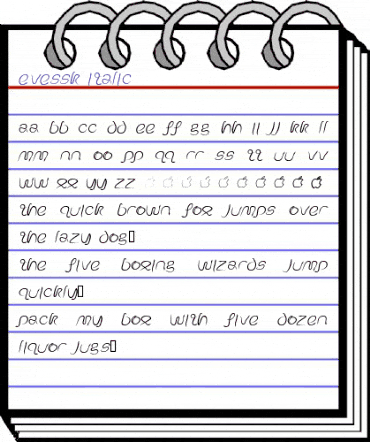 evessk italic
aa bb cc dd ee ff gg hh ii jj kk ll
mm nn oo pp qq rr ss tt uu vv
ww xx yy zz
the quick brown fox jumps over
the lazy dog
the five boxing wizards jump
quickly
pack my box with five dozen
liquor jugs